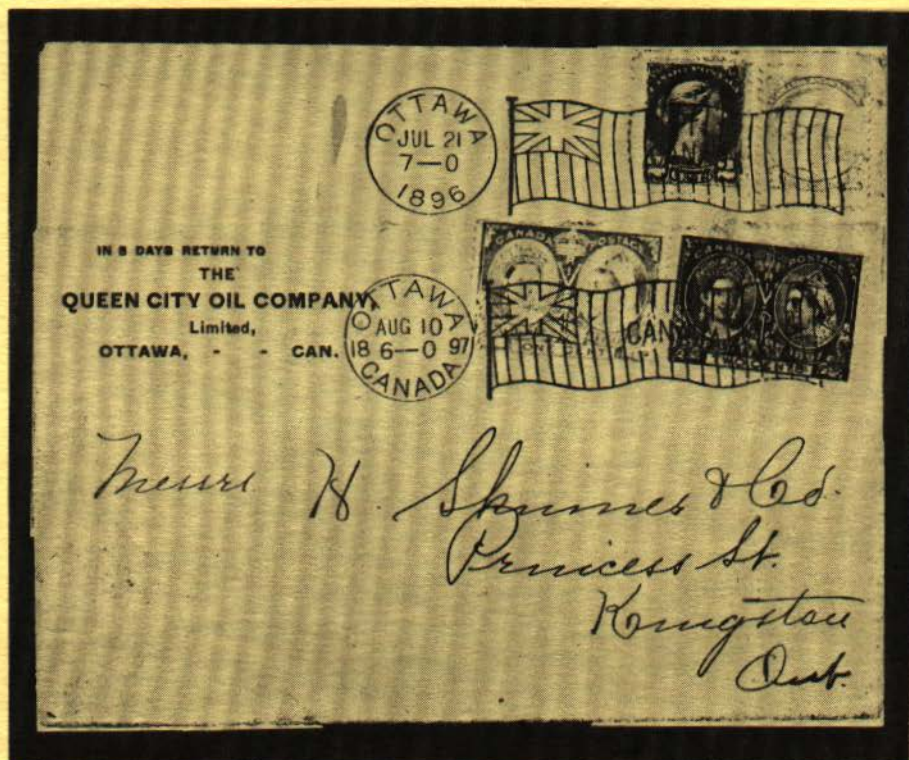 OTTAWA
JUL 21
7—0
1896
IN 5 DAYS RETURN TO
THE
QUEEN CITY OIL COMPANY,
Limited,
OTTAWA, - - CAN.
OTTAWA
AUG 10
18 6—0 97
CANADA
CANADA POSTAGE
CAN
CANADA POSTAGE
TWO CENTS
Messrs H. Skinner & Co.
Princess St.
Kingston
Ont.